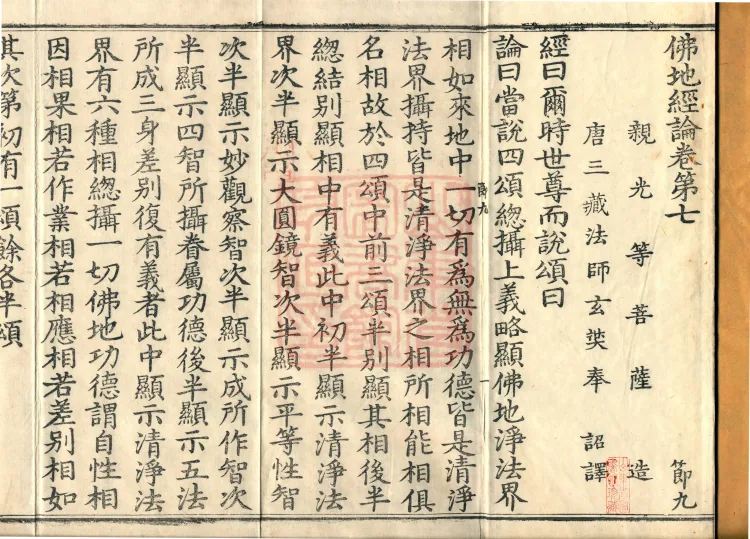 佛地經論卷第七 節九
親光等菩薩造
唐三藏法師玄奘奉 詔譯
經曰爾時世尊而說頌曰
論曰當說四頌總攝上義略顯佛地淨法界
節九 一
相如來地中一切有為無為功德皆是清淨
法界攝持皆是清淨法界之相所相能相俱
名相故於四頌中前三頌半別顯其相後半
總結別顯相中有義此中初半顯示清淨法
界次半顯示大圓鏡智次半顯示平等性智
次半顯示妙觀察智次半顯示成所作智次
半顯示四智所攝眷屬功德後半顯示五法
所成三身差別復有義者此中顯示清淨法
界有六種相總攝一切佛地功德謂自性相
因相果相若作業相若相應相若差別相如
其次第初有一頌餘各半頌